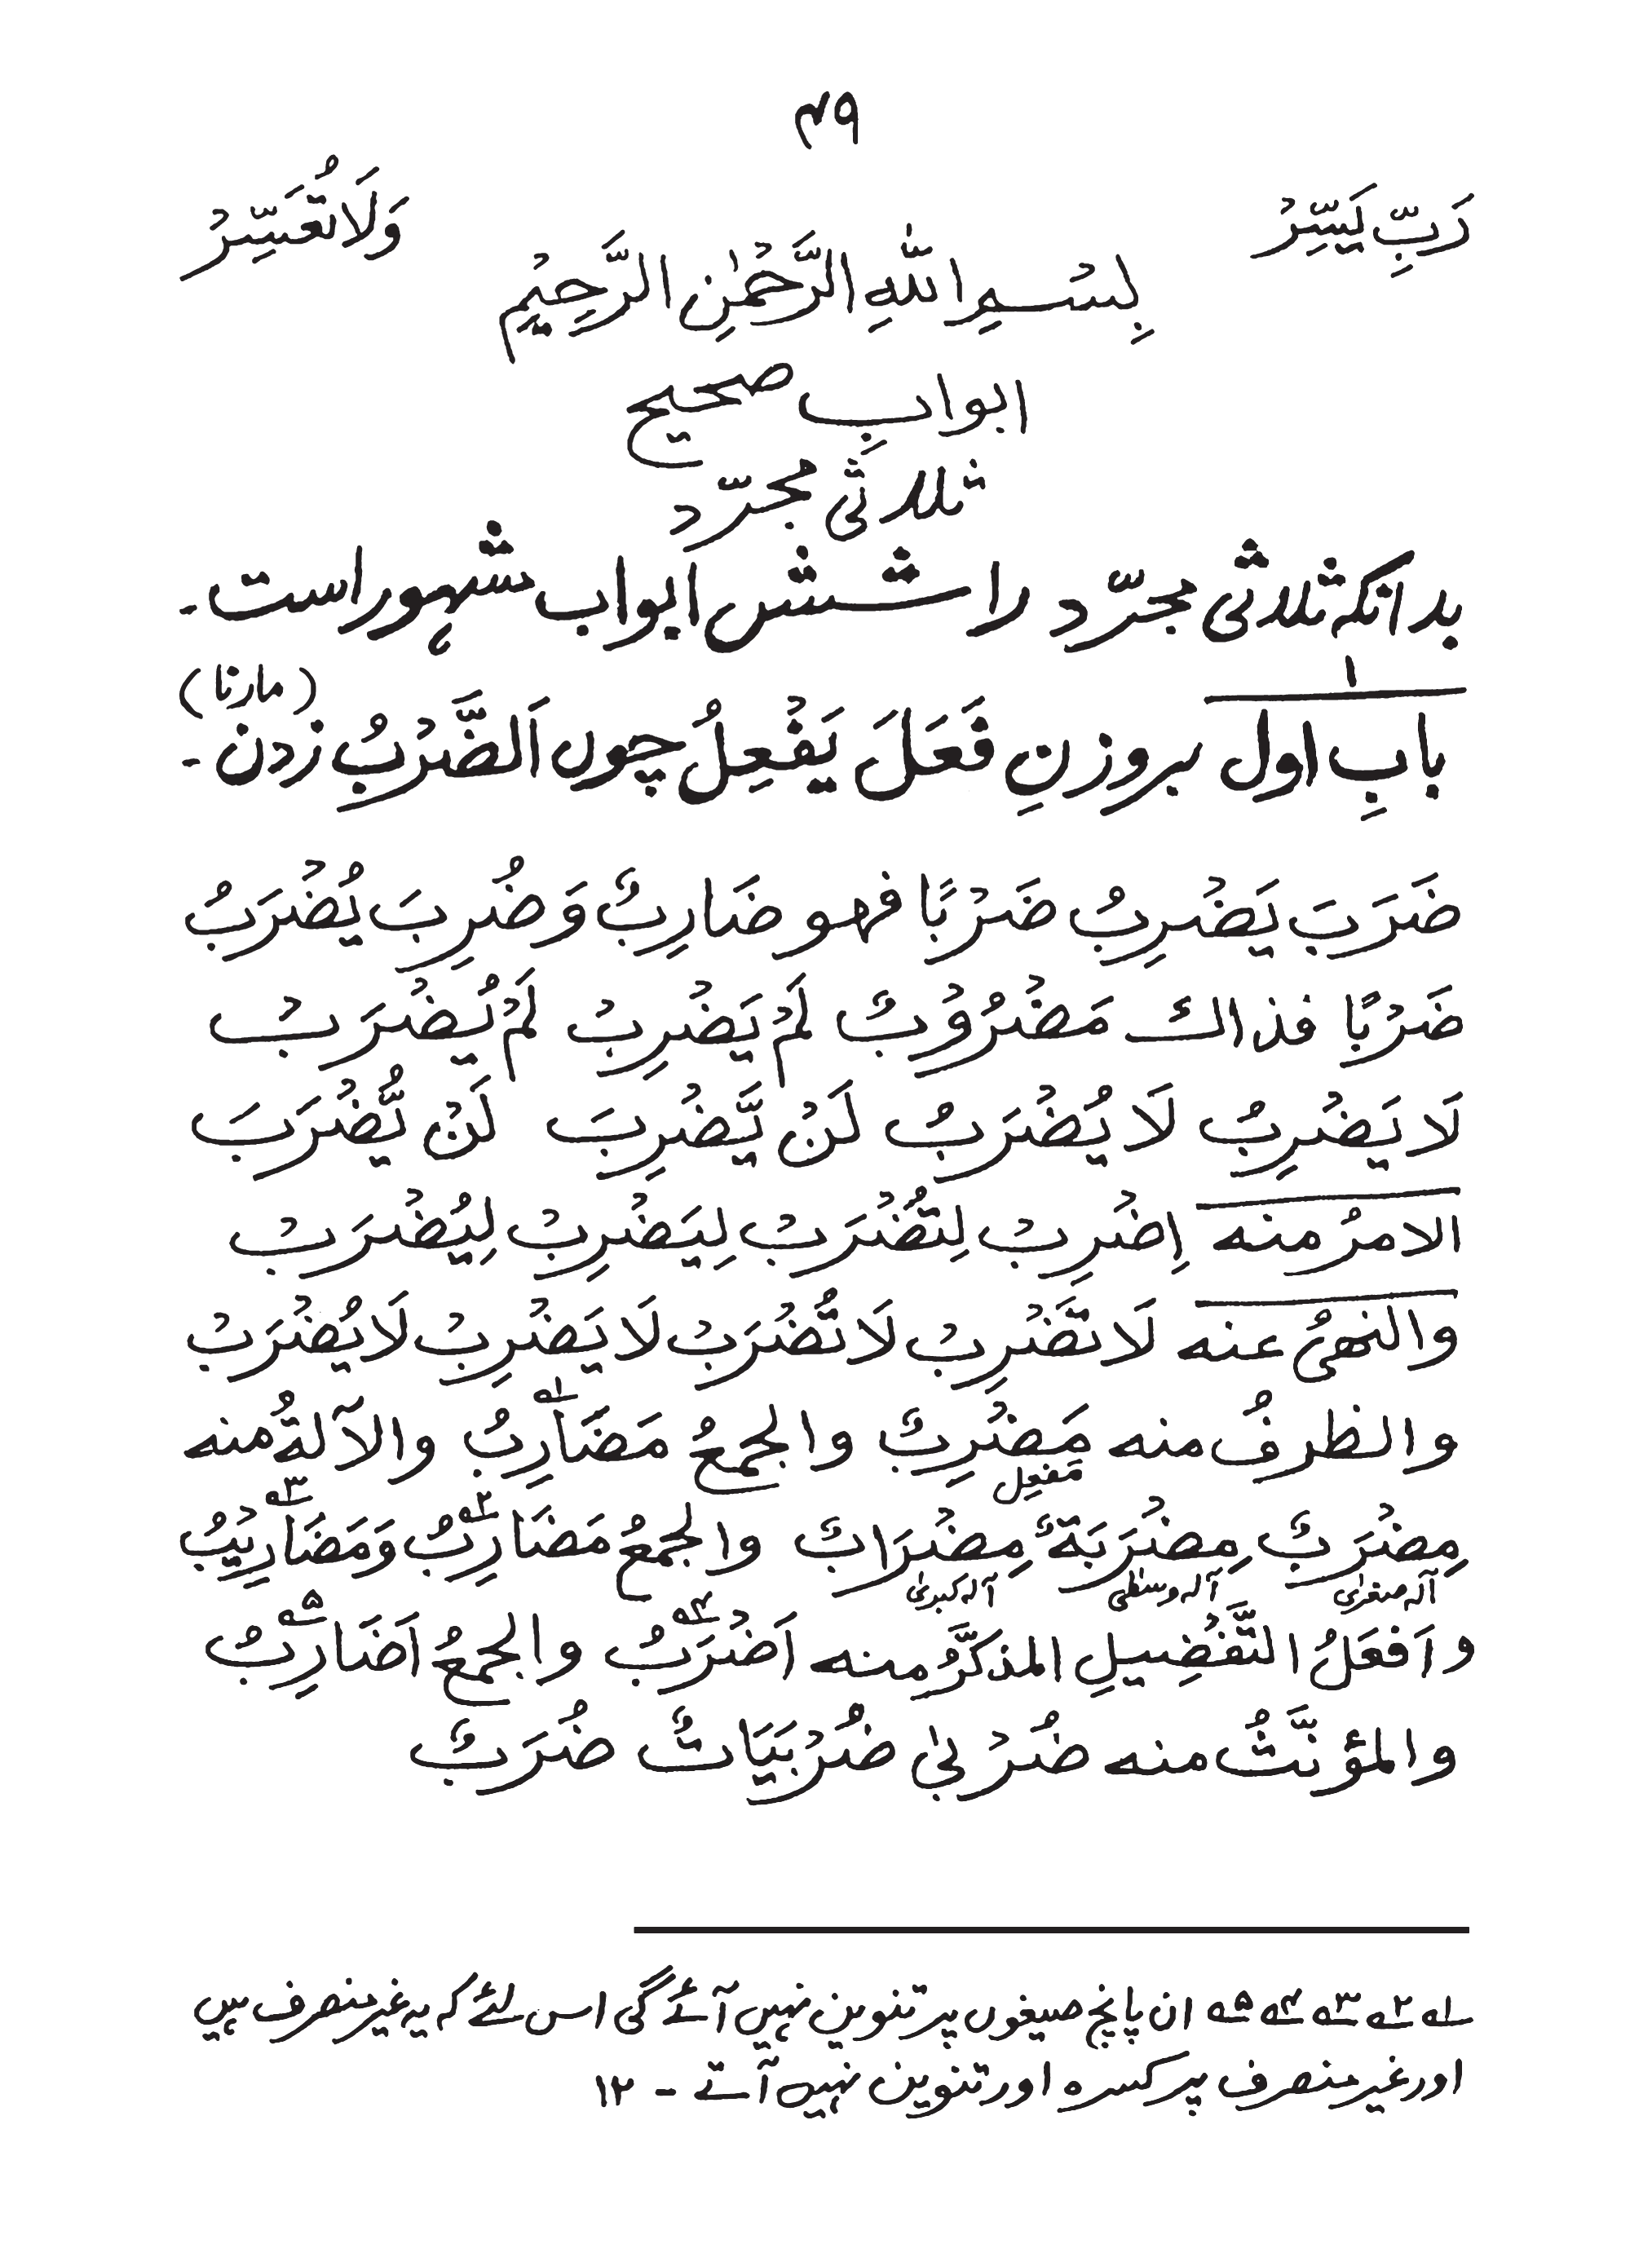 ۴۹
رَبِّ يَسِّرْ وَلَا تُعَسِّرْ
بِسْمِ اللّٰهِ الرَّحْمٰنِ الرَّحِيْمِ
ابوابِ صحیح
ثلاثی مجرّد
بدانکہ ثلاثی مجرّد را شش ابواب مشہور است ۔
۱
بابِ اول بروزنِ فَعَلَ يَفْعِلُ چوں اَلضَّرْبُ زدن ۔ (مارنا)
ضَرَبَ يَضْرِبُ ضَرْبًا فهو ضَارِبٌ وَ ضُرِبَ يُضْرَبُ
ضَرْبًا فذاك مَضْرُوْبٌ لَمْ يَضْرِبْ لَمْ يُضْرَبْ
لَا يَضْرِبُ لَا يُضْرَبُ لَنْ يَّضْرِبَ لَنْ يُّضْرَبَ
الامرُ منه اِضْرِبْ لِتُضْرَبْ لِيَضْرِبْ لِيُضْرَبْ
والنهىُ عنه لَا تَضْرِبْ لَا تُضْرَبْ لَا يَضْرِبْ لَا يُضْرَبْ
والظرفُ منه مَضْرِبٌ والجمعُ مَضَارِبُ ؁۱ والآلةُ منه
مَفعِل
مِضْرَبٌ مِضْرَبَةٌ مِضْرَابٌ والجمعُ مَضَارِبُ ؁۲ وَمَضَارِيْبُ ؁۳
آلہ صغریٰ آلہ وسطٰی آلہ کبریٰ
و اَفعَلُ التَّفْضِيلِ المذكَّرُ منه اَضْرَبُ ؁۴ والجمعُ اَضَارِبُ ؁۵
والمؤنَّثُ منه ضُرْبىٰ ضُرْبَيَاتٌ ضُرَبٌ
؁۱ ؁۲ ؁۳ ؁۴ ؁۵ ان پانچ صیغوں پر تنوین نہیں آئے گی اس لئے کہ یہ غیر منصرف ہیں
اور غیر منصرف پر کسرہ اور تنوین نہیں آتے ۔ ۱۲